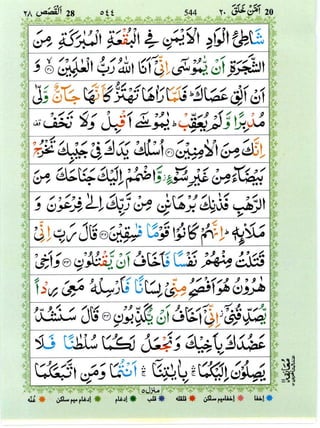 اَلْقَصَص ٢٨ 28 ٥٤٤ 544 اَمَّنْ خَلَقَ ٢٠ 20
شَاطِئِ الْوَادِ الْاَيْمَنِ فِي الْبُقْعَةِ الْمُبٰرَكَةِ مِنَ
الشَّجَرَةِ اَنْ يّٰمُوْسٰۤى اِنِّيْۤ اَنَا اللّٰهُ رَبُّ الْعٰلَمِيْنَ ۙ
وَ اَنْ اَلْقِ عَصَاكَ ؕ فَلَمَّا رَاٰهَا تَهْتَزُّ كَاَنَّهَا جَآنٌّ وَّلّٰى
مُدْبِرًا وَّلَمْ يُعَقِّبْ ؕ يٰمُوْسٰۤى اَقْبِلْ وَلَا تَخَفْ ۫
اِنَّكَ مِنَ الْاٰمِنِيْنَ اُسْلُكْ يَدَكَ فِيْ جَيْبِكَ تَخْرُجْ
بَيْضَآءَ مِنْ غَيْرِ سُوْٓءٍ ۫ وَّاضْمُمْ اِلَيْكَ جَنَاحَكَ مِنَ
الرَّهْبِ فَذٰنِكَ بُرْهَانٰنِ مِنْ رَّبِّكَ اِلٰى فِرْعَوْنَ وَ
مَلَا۠ئِهٖ ؕ اِنَّهُمْ كَانُوْا قَوْمًا فٰسِقِيْنَ قَالَ رَبِّ اِنِّيْ
قَتَلْتُ مِنْهُمْ نَفْسًا فَاَخَافُ اَنْ يَّقْتُلُوْنِ وَاَخِيْ
هٰرُوْنُ هُوَ اَفْصَحُ مِنِّيْ لِسَانًا فَاَرْسِلْهُ مَعِيَ رِدْاً
يُّصَدِّقُنِيْۤ ؗ اِنِّيْۤ اَخَافُ اَنْ يُّكَذِّبُوْنِ قَالَ سَنَشُدُّ
عَضُدَكَ بِاَخِيْكَ وَنَجْعَلُ لَكُمَا سُلْطٰنًا فَلَا
يَصِلُوْنَ اِلَيْكُمَا ۚ بِاٰيٰتِنَاۤ ۚ اَنْتُمَا وَمَنِ اتَّبَعَكُمَا
منزل ٥
اخفا اخفا میم ساکن قلقلہ قلب ادغام ادغام میم ساکن غنّہ